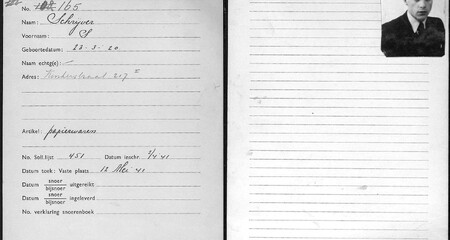 No. 165
Naam: Schrijver
Voornaam: S
Geboortedatum: 23-3-20
Naam echtg(e):-
Adres: 217 II
Artikel: papierwaren
No. Soll.lijst 451 Datum inschr. 2/4 41
Datum toek: Vaste plaats 12 Mei 41
Datum snoer/bijsnoer uitgereikt
Datum snoer/bijsnoer ingeleverd
No. verklaring snoerenboek